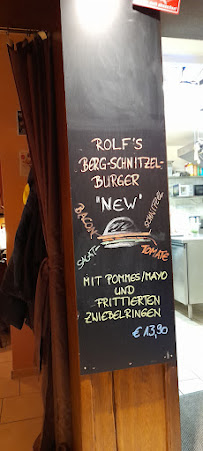 ROLF'S
BERG-SCHNITZEL-
BURGER
"NEW"
BACON
SCHNITZEL
SALAT
TOMATE
MIT POMMES/MAYO
UND
FRITTIERTEN
ZWIEBELRINGEN
€ 13,90